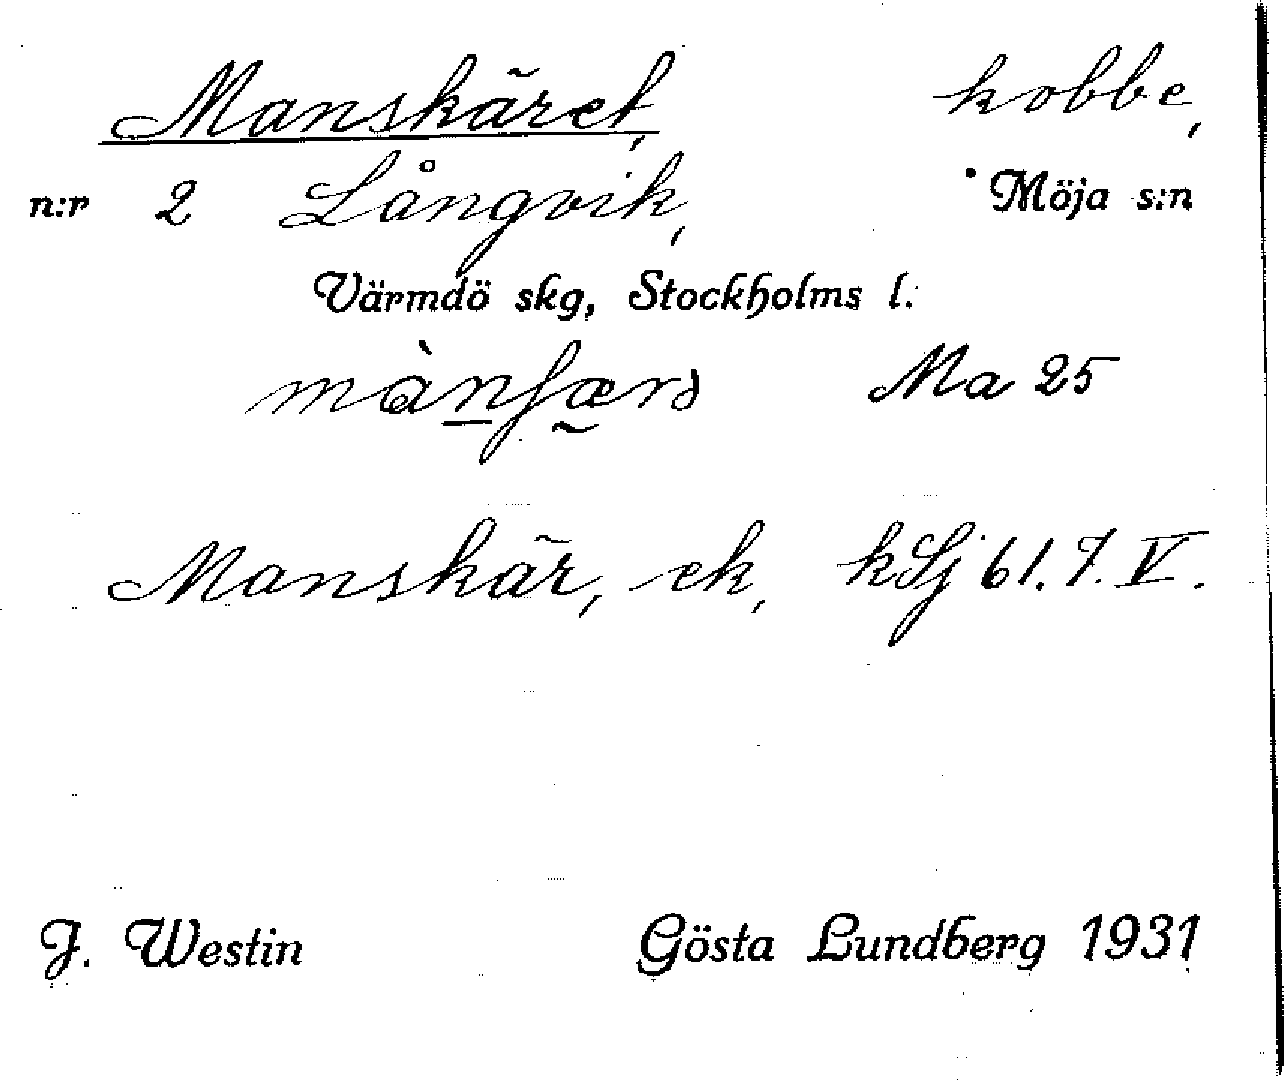 Manskäret, kobbe,
n:r 2 Långvik, Möja s:n
Värmdö skg, Stockholms l.
Ma 25
Manskär, ek, kSj 61. 7. V.
J. Westin Gösta Lundberg 1931